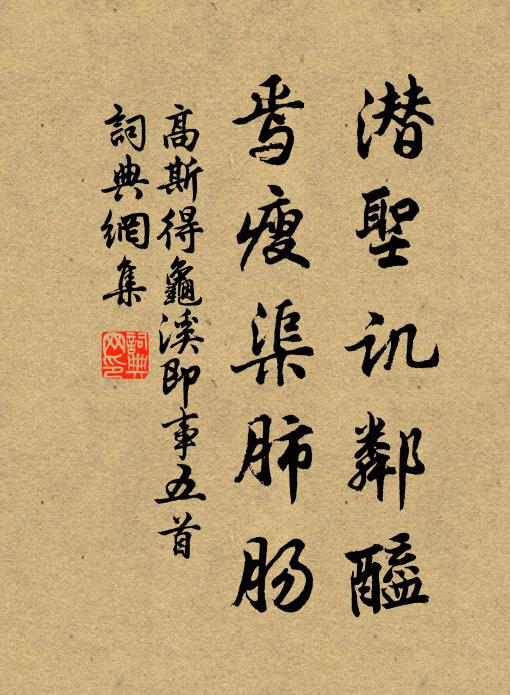 潜聖讥鄰醯
焉瘦渠肺肠
高斯得龜溪即事五首
詞典網集
詞典網印